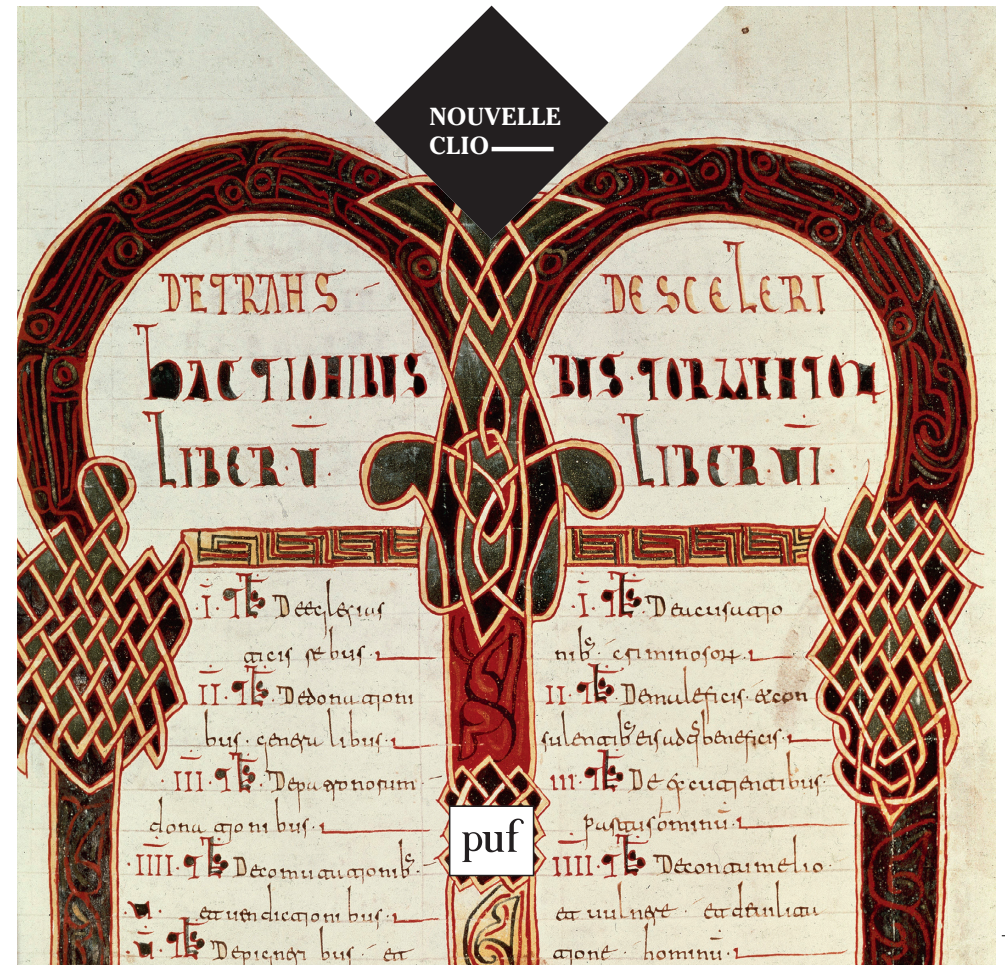 NOUVELLE
CLIO
DETRANS
hACTIONIBUS
LIBER V̄
I. TT Deeclesius
ticis rebus
II. TT Dedonationi
bus generalibus
III. TT Depatronorum
donationibus
IIII. TT Decomutationib
et uendictionibus
V. TT Depigneribus et
DESCELERI
BUS TORMENTOR
LIBER VI
I. TT Deacusatio
nib criminosor
II. TT Demaleficis et con
sulentib eis adq beneficis
III. TT De
partus ominu
IIII. TT Decontumelio
et uulnere et deuilitati
tione hominu
puf